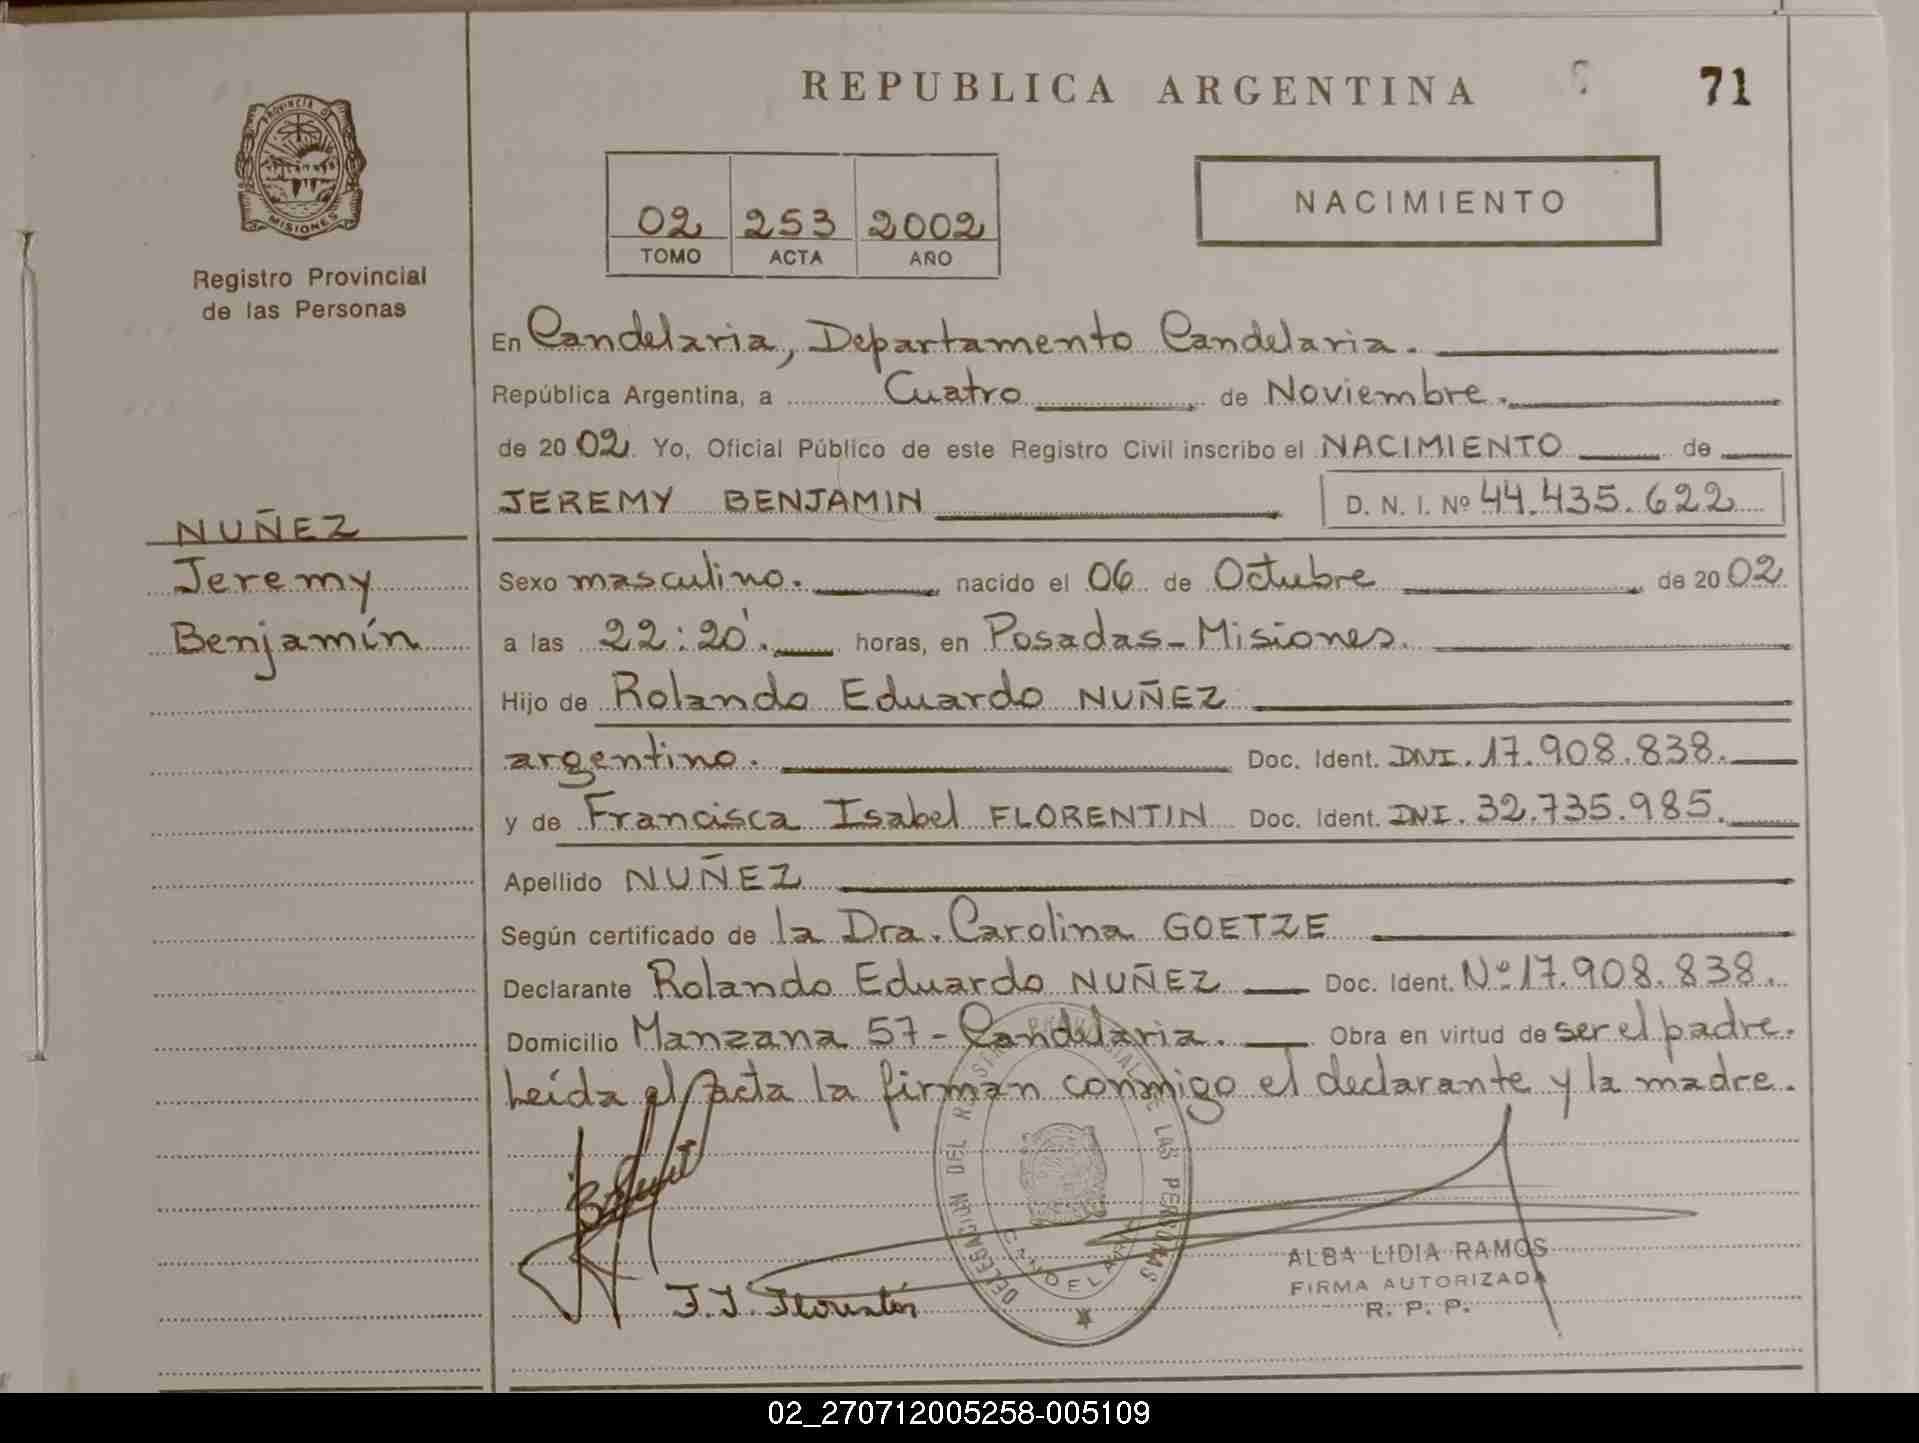 REPUBLICA ARGENTINA
71
PROVINCIA D
MISIONES
Registro Provincial
de las Personas
02 253 2002
TOMO ACTA AÑO
NACIMIENTO
En Candelaria, Departamento Candelaria.
República Argentina, a Cuatro de Noviembre.
de 2002. Yo, Oficial Público de este Registro Civil inscribo el NACIMIENTO de
JEREMY BENJAMIN D. N. I. Nº 44.435.622
NUÑEZ
Jeremy
Benjamín
Sexo masculino. nacido el 06 de Octubre de 2002
a las 22:20'. horas, en Posadas-Misiones.
Hijo de Rolando Eduardo NUÑEZ
argentino. Doc. Ident. DNI. 17.908.838.
y de Francisca Isabel FLORENTIN Doc. Ident. DNI. 32.735.985.
Apellido NUÑEZ
Según certificado de la Dra. Carolina GOETZE
Declarante Rolando Eduardo NUÑEZ Doc. Ident. Nº 17.908.838.
Domicilio Manzana 57 - Candelaria. Obra en virtud de ser el padre.
Leída el acta la firman conmigo el declarante y la madre.
DELEGACION DEL REGISTRO PROVINCIAL DE LAS PERSONAS
CANDELARIA
F. I. Florentín
ALBA LIDIA RAMOS
FIRMA AUTORIZADA
R. P. P.
02_270712005258-005109